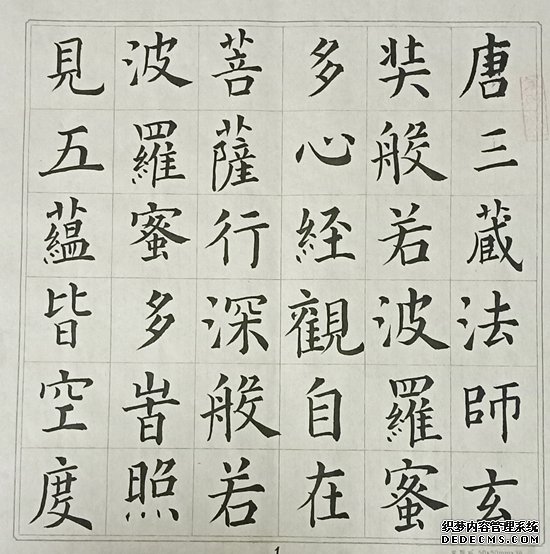 唐三藏法師玄
奘般若波羅蜜
多心經觀自在
菩薩行深般若
波羅蜜多旹照
見五蘊皆空度
1
织梦内容管理系统
DEDECMS.COM